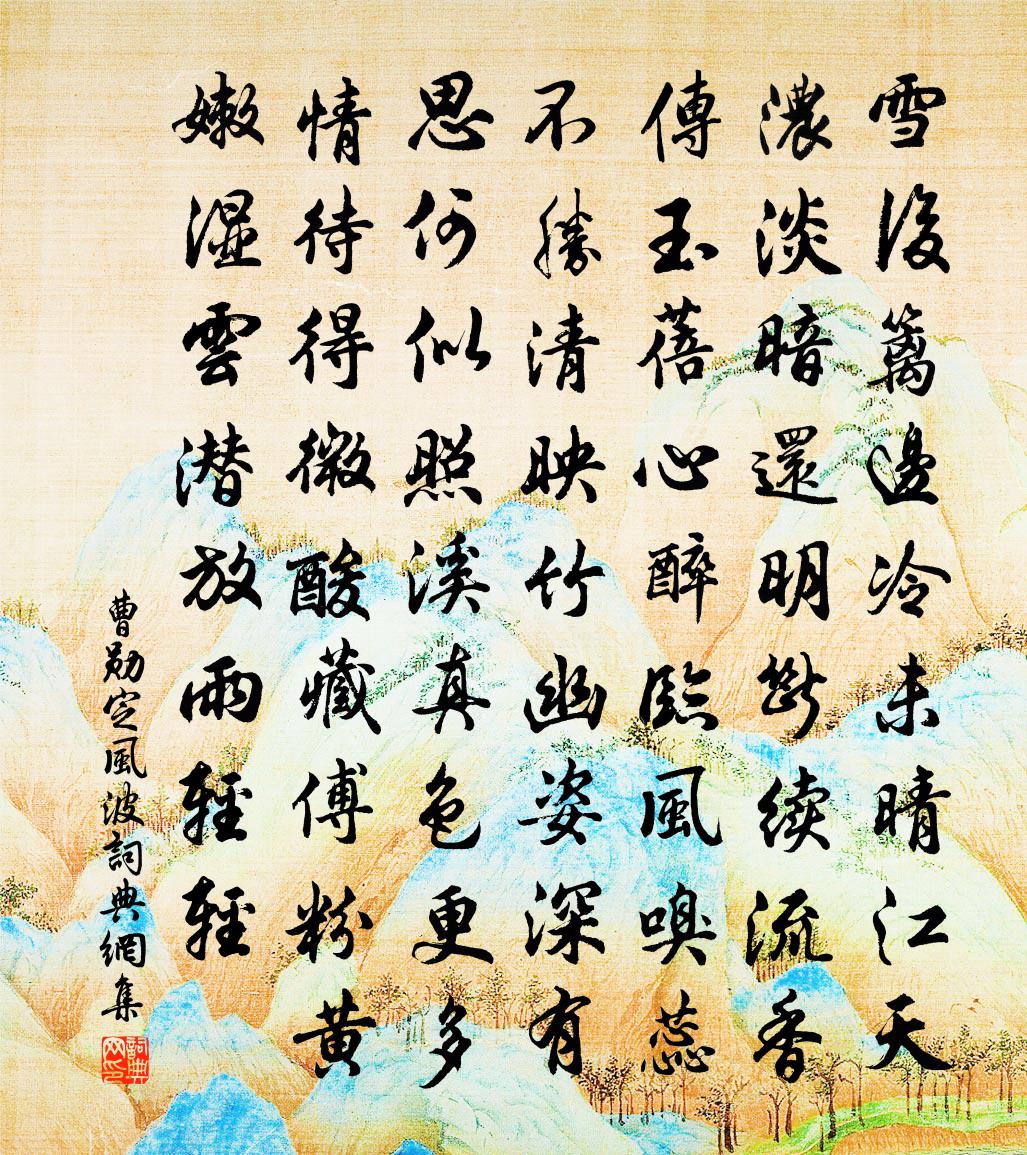 雪後籬邊冷未晴江天
濃淡暗還明斷續流香
傳玉蓓心醉臨風嗅蕊
不勝清映竹幽姿深有
思何似照溪真色更多
情待得微酸藏傅粉黃
嫩湿雲潜放雨輕輕
曹勛定風波詞典網集
詞典
网印